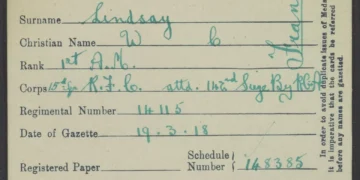 Surname Lindsay
Christian Name W C
Rank 1st A.M.
Corps R.F.C. attd. 142nd Siege By R.G.A.
Regimental Number 14115
Date of Gazette 19.3.18
Registered Paper Schedule Number 148385
In order to avoid duplicate issues of Meda
it is imperative that the cards be referred
before any names are gazetted.